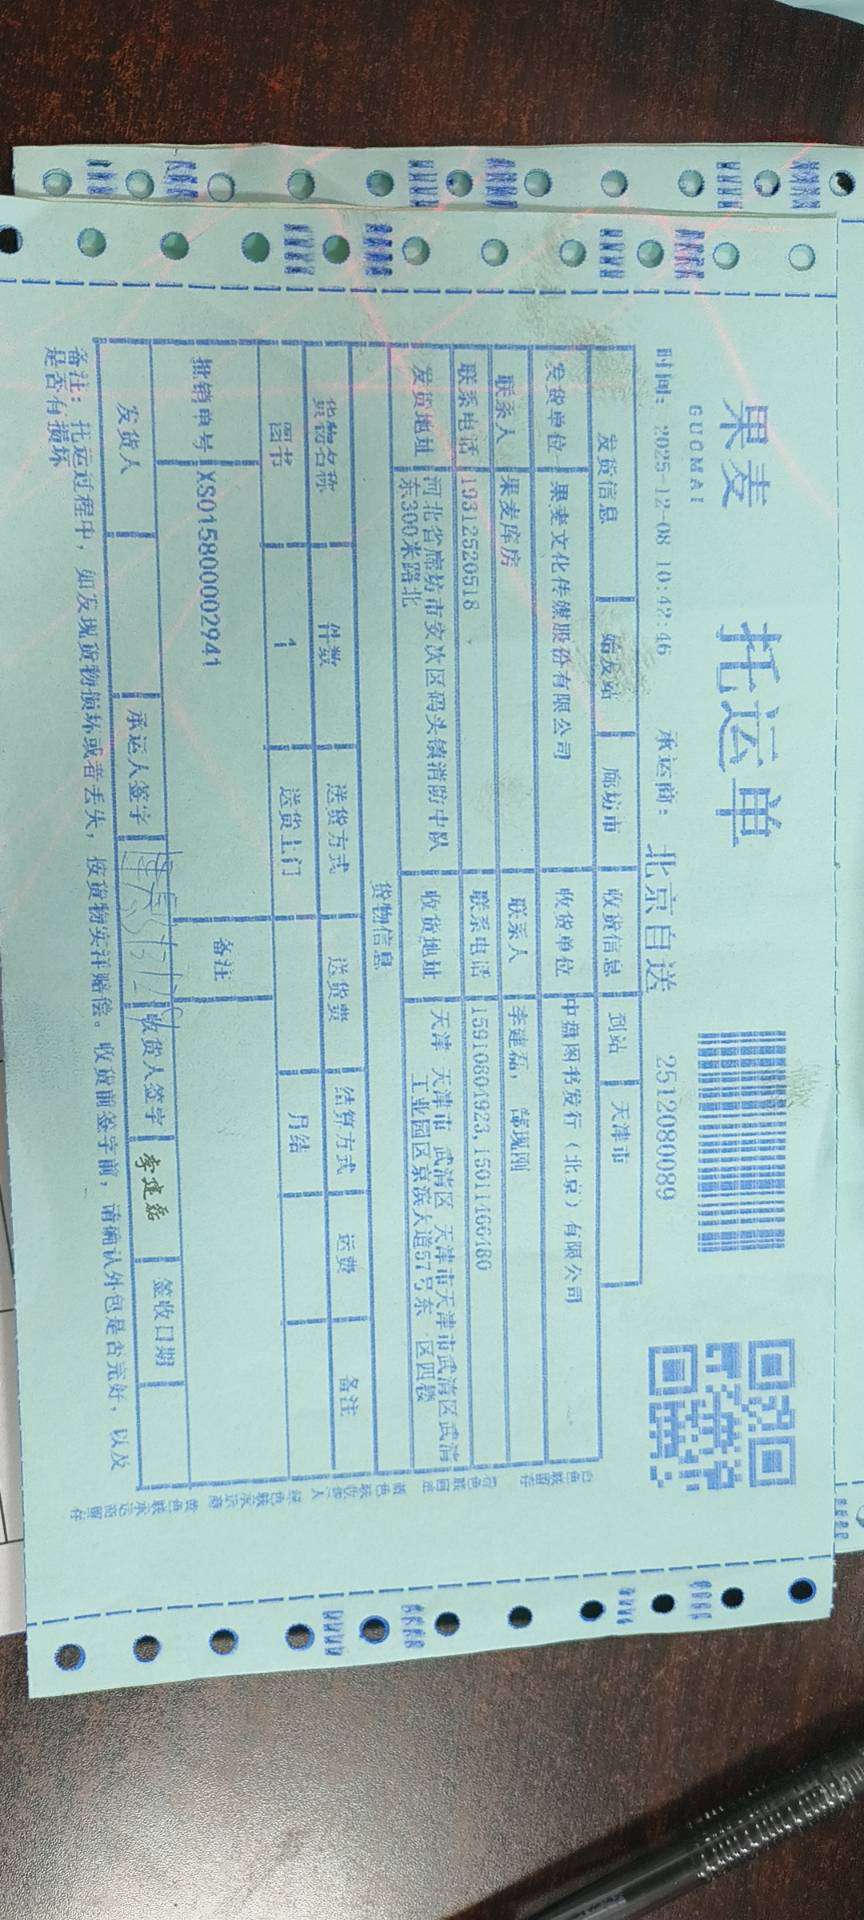 果麦 托运单
GUOMAI
时间: 2025-12-08 10:42:46 承运商: 北京自送 2512080089
发货信息 始发站 廊坊市 收货信息 到站 天津市
发货单位 果麦文化传媒股份有限公司 收货单位 中盘图书发行（北京）有限公司
联系人 果麦库房 联系人 李建磊,
联系电话 19312520518 联系电话 15910804923,15011466480
发货地址 河北省廊坊市安次区码头镇消防中队
东300米路北
收货地址 天津 天津市 武清区 天津市天津市武清区武清
工业园区京滨大道57号东 区四楼
货物信息
货物名称 件数 送货方式 送货费 结算方式 运费 备注
图书 1 送货上门 月结
批销单号 XS015800002941 备注
发货人 承运人签字 收货人签字 李建磊 签收日期
备注: 托运过程中, 如发现货物损坏或者丢失, 按货物实洋赔偿。收货前签字前, 请确认外包是否完好, 以及
是否有损坏